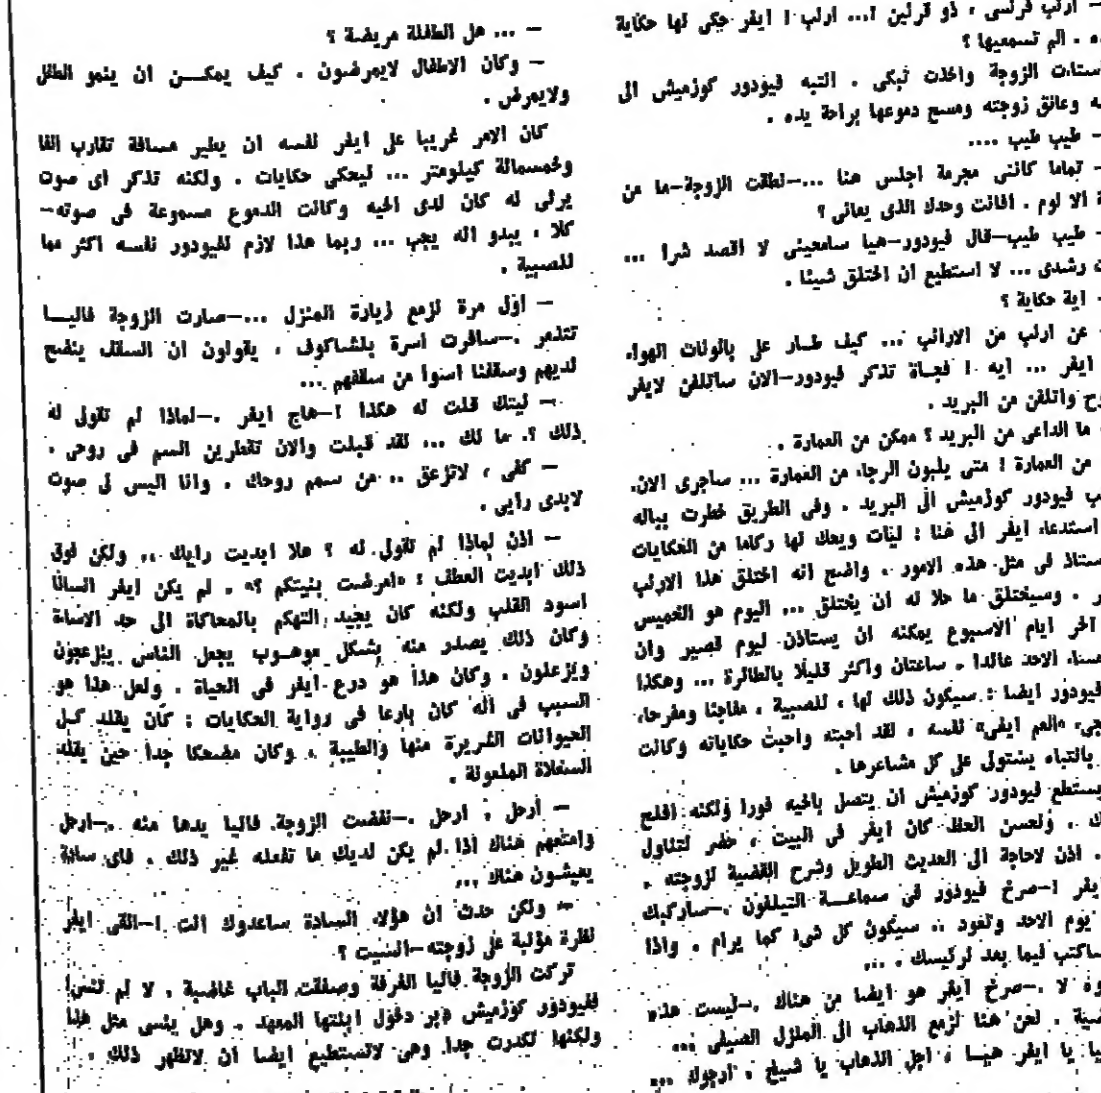 – ارنب فرنسى ، ذو قرنين !... ارنب ! ايفر حكى لها حكاية
. الم تسمعيها ؟
استاءت الزوجة واخذت تبكى . انتبه فيودور كوزميتش الى
وعانق زوجته ومسح دموعها براحة يده .
– طيب طيب ....
– تماما كاننى مجرمة اجلس هنا ...–نطقت الزوجة–ما من
الا لوم . افانت وحدك الذى يعانى ؟
– طيب طيب–قال فيودور–هيا سامحينى لا اقصد شرا ...
رشدى ... لا استطيع ان اختلق شيئا .
اية حكاية ؟
عن ارنب من الارانب ... كيف طار على بالونات الهواء
ايفر ... ايه ! فجاة تذكر فيودور–الان ساتلفن لايفر
واتلفن من البريد .
ما الداعى من البريد ؟ ممكن من العمارة .
من العمارة ! متى يلبون الرجاء من العمارة ... ساجرى الان.
فيودور كوزميتش الى البريد . وفى الطريق خطرت بباله
استدعاء ايفر الى هنا : ليات ويحك لها ركاما من الحكايات
فى مثل هذه الامور . واضح انه اختلق هذا الارنب
. وسيختلق ما حلا له ان يختلق ... اليوم هو الخميس
اخر ايام الاسبوع يمكنه ان يستاذن ليوم قصير وان
مساء الاحد عائدا . ساعتان واكثر قليلا بالطائرة ... وهكذا
فيودور ايضا : سيكون ذلك لها ، للصبية ، مفاجئا ومفرحا،
«العم ايفر» نفسه ، لقد احبته واحبت حكاياته وكانت
بانتباه يستولى على كل مشاعرها .
يستطع فيودور كوزميتش ان يتصل باخيه فورا ولكنه افلح
. ولحسن الحظ كان ايفر فى البيت ، حضر لتناول
. اذن لاحاجة الى الحديث الطويل وشرح القضية لزوجته .
ايفر !–صرخ فيودور فى سماعـة التيلفون .–ساركبك
يوم الاحد وتعود .. سيكون كل شىء كما يرام . واذا
ساكتب فيما بعد لرئيسك . ...
لا .–صرخ ايفر هو ايضا من هناك .–ليست هذه
. نحن هنا نزمع الذهاب الى المنزل الصيفى ...
يا ايفر هيـا ، اجل الذهاب يا شيخ ، ارجوك ...
– ... هل الطفلة مريضة ؟
– وكان الاطفال لايمرضون . كيف يمكـن ان ينمو الطفل
ولايمرض .
كان الامر غريبا على ايفر نفسه ان يطير مسافة تقارب الفا
وخمسمائة كيلومتر ... ليحكى حكايات . ولكنه تذكر اى صوت
يرثى له كان لدى اخيه وكانت الدموع مسموعة فى صوته–
كلا ، يبدو انه يجب ... ربما هذا لازم لفيودور نفسه اكثر مما
للصبية .
– اول مرة نزمع زيارة المنزل ...–صارت الزوجة فاليـا
تتذمر .–سافرت اسرة بلشاكوف ، يقولون ان السقف ينضح
لديهم وسقفنا اسوا من سقفهم ...
– ليتك قلت له هكذا !–هاج ايفر .–لماذا لم تقولى له
ذلك ؟. ما لك ... لقد قبلت والان تقطرين السم فى روحى .
– كفى ، لاتزعق .. من سمم روحك . وانا اليس لى صوت
لابدى رايى .
– اذن لماذا لم تقولى له ؟ هلا ابديت رايك .. ولكن فوق
ذلك ابديت العطف : «امرضت بنيتكم ؟» . لم يكن ايفر انسانا
اسود القلب ولكنه كان يجيد التهكم بالمحاكاة الى حد الاساءة
وكان ذلك يصدر منه بشكل موهـوب يجعل الناس ينزعجون
ويزعلون . وكان هذا هو درع ايفر فى الحياة . ولعل هذا هو
السبب فى انه كان بارعا فى رواية الحكايات : كان يقلد كـل
الحيوانات الشريرة منها والطيبة ، وكان مضحكا جدا حين يقلد
السعلاة الملعونة .
– ارحل ، ارحل .–نفضت الزوجة فاليا يدها منه .–ارحل
وامتعهم هناك اذا لم يكن لديك ما تفعله غير ذلك . فاى سادة
يعيشون هناك ...
– ولكن حدث ان هؤلاء السادة ساعدوك انت !–القى ايفر
نظرة مؤلبة على زوجته–انسيت ؟
تركت الزوجة فاليا الغرفة وصفقت الباب غاضبة . لا لم تنس!
ففيودور كوزميتش دبر دخول ابنتها المعهد . وهل ينسى مثل هذا
ولكنها تكدرت جدا وهى لاتستطيع ايضا ان لاتظهر ذلك .